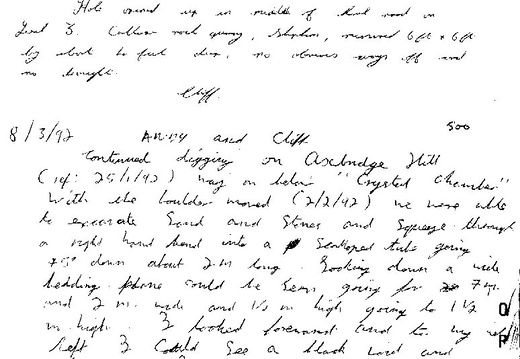 Hole opened up in middle of haul road on
Level 3. Callow rock quarry, Shipham, measured 6ft x 6ft
by about 10 feet deep, no obvious ways off and
no draught.
Cliff.
500
8/3/92 Andy and Cliff
Continued digging on Axbridge Hill
(ref: 25/1/92) way on below "Crystal Chamber"
With the boulder moved (2/2/92) we were able
to excavate Sand and Stones and Squeeze through
a right hand bend into a scalloped tube going
45° down about 2m long. Looking down a wide
bedding plane could be seen going for 7m.
and 2 m. wide and 1/2 m high going to 1 1/2
m. high. I looked forward and to my
left I could see a black void and